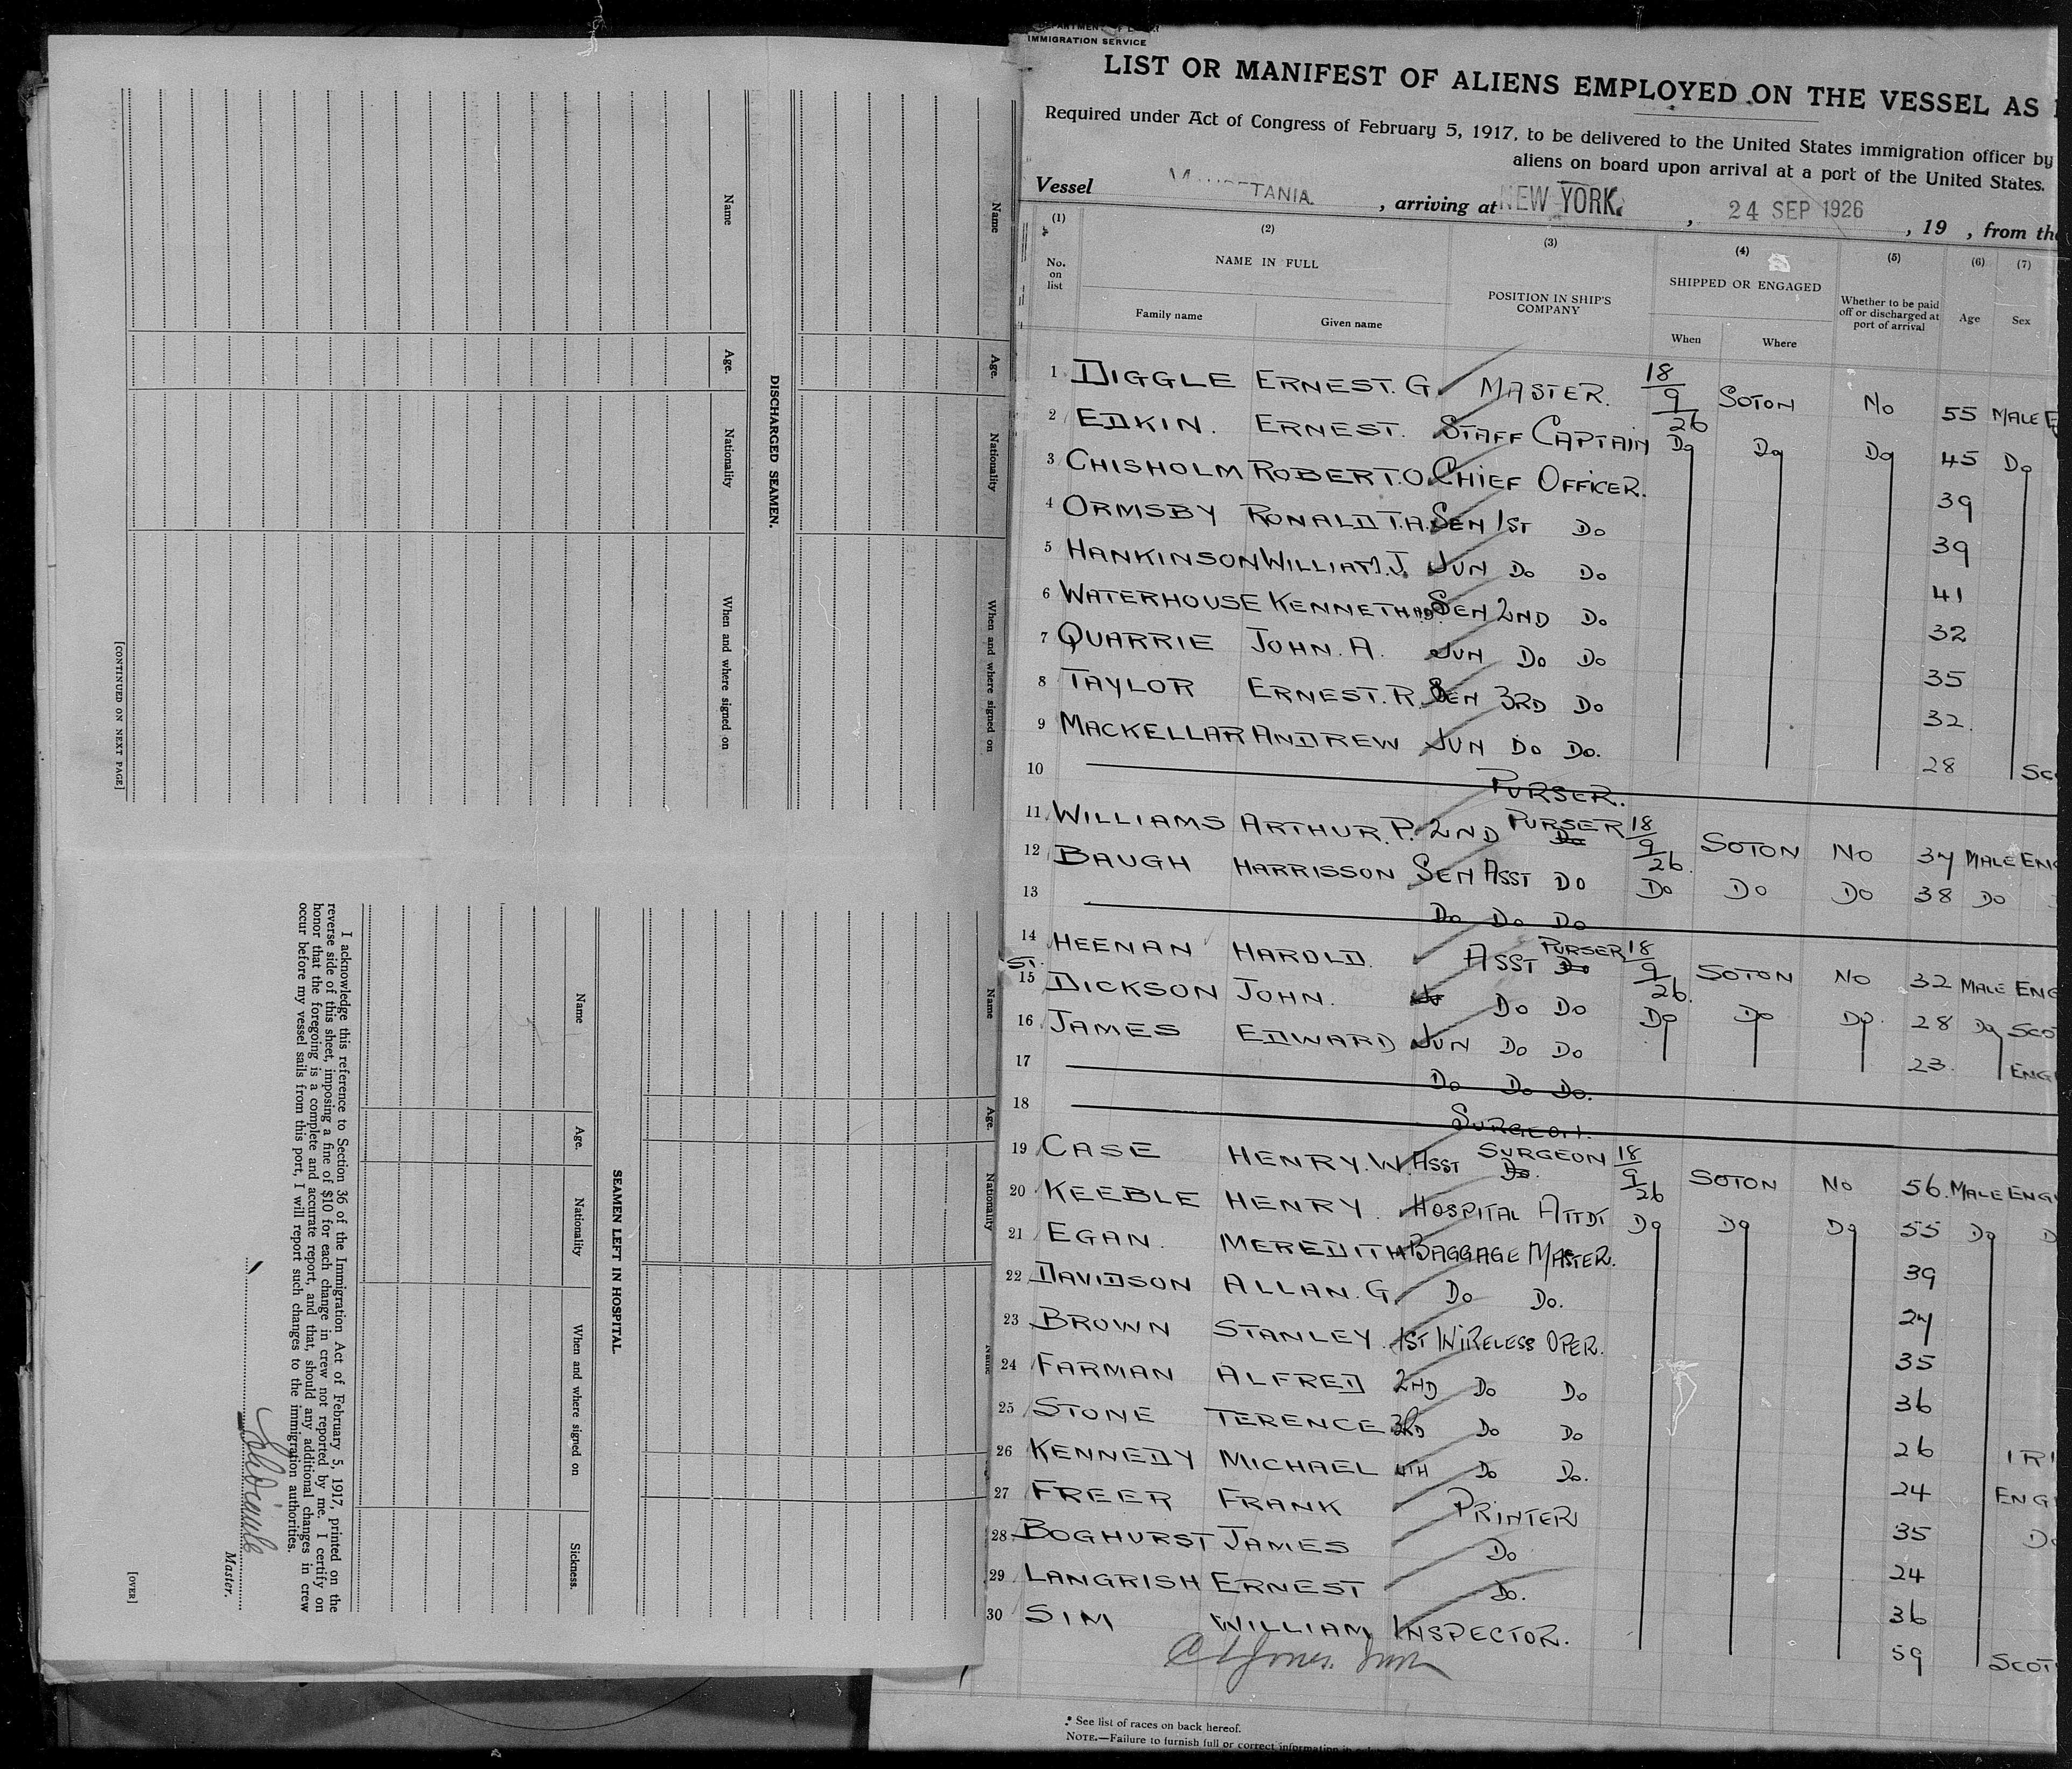 Name
Age.
Nationality
When and where signed on
DISCHARGED SEAMEN.
Name
Age.
Nationality
When and where signed on
[CONTINUED ON NEXT PAGE]
Name
Age.
Nationality
SEAMEN LEFT IN HOSPITAL.
Name
Age.
Nationality
When and where signed on
Sickness.
I acknowledge this reference to Section 36 of the Immigration Act of February 5, 1917, printed on the
reverse side of this sheet, imposing a fine of $10 for each change in crew not reported by me. I certify on
honor that the foregoing is a complete and accurate report, and that, should any additional changes in crew
occur before my vessel sails from this port, I will report such changes to the immigration authorities.
Master.
[OVER]
IMMIGRATION SERVICE
LIST OR MANIFEST OF ALIENS EMPLOYED ON THE VESSEL AS
Required under Act of Congress of February 5, 1917, to be delivered to the United States immigration officer by
aliens on board upon arrival at a port of the United States.
Vessel MAURETANIA. , arriving at NEW YORK. , 24 SEP 1926 , 19 , from the
(1) (2) (3) (4) (5) (6) (7)
No. on list NAME IN FULL POSITION IN SHIP'S COMPANY SHIPPED OR ENGAGED Whether to be paid off or discharged at port of arrival Age Sex
Family name Given name When Where
1 DIGGLE ERNEST. G. MASTER. 18/9/26 SOTON NO 55 MALE
2 EDKIN. ERNEST. STAFF CAPTAIN DO DO DO 45 DO
3 CHISHOLM ROBERT. O. CHIEF OFFICER. 39
4 ORMSBY RONALD T.A. SEN 1ST DO 39
5 HANKINSON WILLIAM. J. JUN DO DO 41
6 WATERHOUSE KENNETH SEN 2ND DO 32
7 QUARRIE JOHN. A. JUN DO DO 35
8 TAYLOR ERNEST. R. SEN 3RD DO 32.
9 MACKELLAR ANDREW JUN DO DO. 28 SCO
10 PURSER.
11 WILLIAMS ARTHUR. P. 2ND PURSER DO 18/9/26 SOTON NO 34 MALE ENG
12 BAUGH HARRISSON SEN ASST DO DO DO DO 38 DO
13 DO DO DO
14 HEENAN HAROLD. ASST PURSER DO 18/9/26 SOTON NO 32 MALE ENG
ST.
15 DICKSON JOHN. DO DO DO DO DO. 28 DO SCOT
16 JAMES EDWARD JUN DO DO 23. ENG
17 DO DO DO.
18 SURGEON.
19 CASE HENRY. W. ASST SURGEON DO. 18/9/26 SOTON NO 56. MALE ENG
20 KEEBLE HENRY. HOSPITAL ATTDT DO DO DO 55 DO D
21 EGAN. MEREDITH BAGGAGE MASTER. 39
22 DAVIDSON ALLAN. G. DO DO. 24
23 BROWN STANLEY. 1ST WIRELESS OPER. 35
24 FARMAN ALFRED 2ND DO DO 36
25 STONE TERENCE 3RD DO DO 26 IRI
26 KENNEDY MICHAEL 4TH DO DO. 24 ENG
27 FREER FRANK PRINTER 35 DO
28 BOGHURST JAMES DO 24
29 LANGRISH ERNEST DO. 36
30 SIM WILLIAM INSPECTOR. 59 SCOT
* See list of races on back hereof.
NOTE.—Failure to furnish full or correct information in